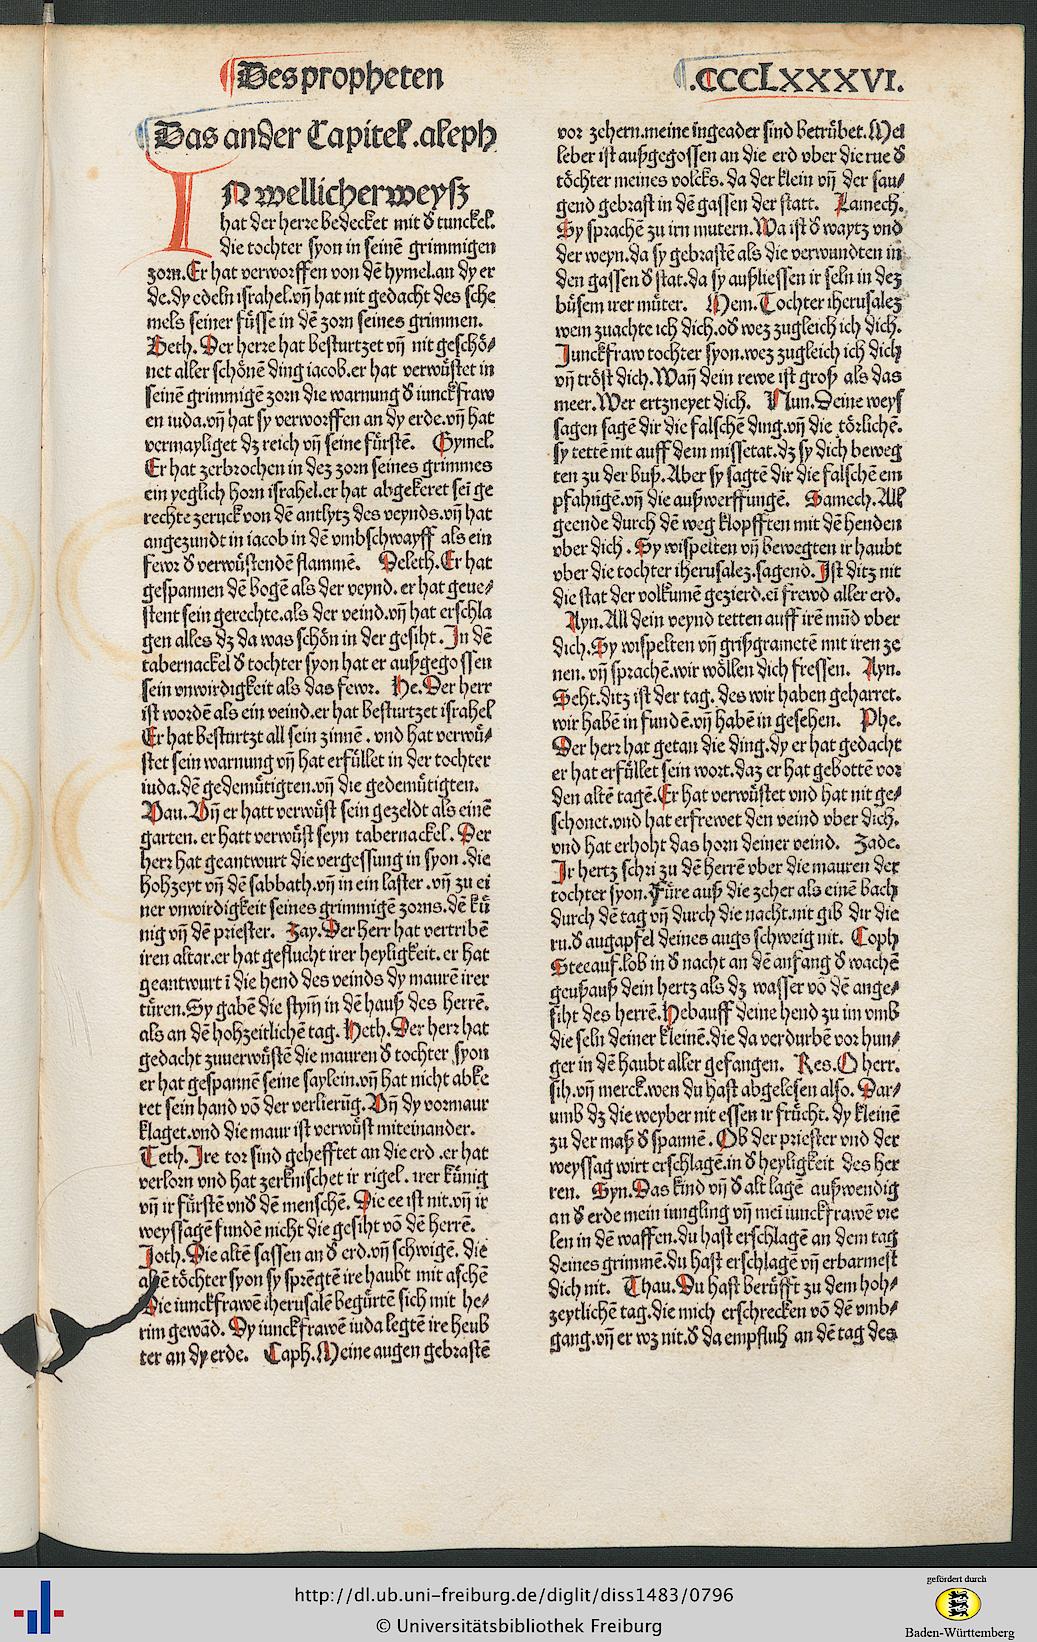 Des propheten
.CCCLXXXVI.
Das ander Capitel .aleph
IN wellicher weysz
hat der herre bedecket mit ď tunckel.
die tochter syon in seinē grimmigen
zorn. Er hat verworffen von dē hymel.an dy er
de.dy edeln israhel.vn̄ hat nit gedacht des sche
mels seiner fuͤsse in dē zorn seines grimmen.
Beth. Der herre hat besturtzet vn̄ nit geschoͤ⸗
net aller schoͤnē ding iacob.er hat verwuͤstet in
seinē grimmigē zorn die warnung ď iunckfraw
en iuda.vn̄ hat sy verworffen an dy erde.vn̄ hat
vermayliget dz reich vn̄ seine fuͤrstē. Gymel.
Er hat zerbrochen in dez zorn seines grimmes
ein yeglich horn israhel.er hat abgekeret sei ge
rechte zeruck von dē antlytz des veynds.vn̄ hat
angezundt in iacob in dē vmbschwayff als ein
fewr ď verwuͤstendē flammē. Deleth. Er hat
gespannen dē bogē als der veynd. er hat geue⸗
stent sein gerechte.als der veind.vn̄ hat erschla
gen alles dz da was schoͤn in der gesiht. In dē
tabernackel ď tochter syon hat er außgegossen
sein vnwirdigkeit als das fewr. He. Der herr
ist wordē als ein veind.er hat besturtzet israhel
Er hat besturtzt all sein zinnē. vnd hat verwuͤ⸗
stet sein warnung vn̄ hat erfuͤllet in der tochter
iuda.dē gedemuͤtigten.vn̄ die gedemuͤtigten.
Vau. Vn̄ er hatt verwuͤst sein gezeldt als einē
garten. er hatt verwuͤst seyn tabernackel. Der
herr hat geantwurt die vergessung in syon .die
hohzeyt vn̄ dē sabbath.vn̄ in ein laster .vn̄ zu ei
ner vnwirdigkeit seines grimmigē zorns.dē kuͤ
nig vn̄ dē priester. Zay. Der herr hat vertribē
iren altar.er hat geflucht irer heyligkeit. er hat
geantwurt ī die hend des veinds dy maurē irer
tuͤren. Sy gabē die stym̄ in dē hauß des herrē.
als an dē hohzeitlichē tag. Heth. Der herr hat
gedacht zuuerwuͤstē die mauren ď tochter syon
er hat gespannē seine saylein.vn̄ hat nicht abke
ret sein hand vō der verlierūg. Vn̄ dy vormaur
klaget.vnd die maur ist verwuͤst miteinander.
Teth. Ire tor sind gehefftet an die erd .er hat
verlorn vnd hat zerknischet ir rigel. irer kuͤnig
vn̄ ir fuͤrstē vnď dē menschē. Die ee ist nit.vn̄ ir
weyssagē fundē nicht die gesiht vō dē herrē.
Joth. Die altē sassen an ď erd.vn̄ schwigē. die
toͤchter syon sy sprēgtē ire haubt mit aschē
Die iunckfrawē iherusalē beguͤrtē sich mit he⸗
rim gewād. Dy iunckfrawē iuda legtē ire heub
ter an dy erde. Caph. Meine augen gebrastē
vor zehern.meine ingeader sind betruͤbet. Mei
leber ist außgegossen an die erd vber die rue ď
toͤchter meines volcks. da der klein vn̄ der sau⸗
gend gebrast in dē gassen der statt. Lamech.
Sy sprachē zu irn mutern. Wa ist ď waytz vnd
der weyn.da sy gebrastē als die verwundten in
den gassen ď stat.da sy außliessen ir seln in dez
buͤsem irer muͤter. Mem. Tochter iherusalez
wem zuachte ich dich.oď wez zugleich ich dich.
Junckfraw tochter syon.wez zugleich ich dich
vn̄ troͤst dich. Wan̄ dein rewe ist groß als das
meer. Wer ertzneyet dich. Nun. Deine weys
sagen sagē dir die falschē ding.vn̄ die toͤrlichē.
sy tettē nit auff dein missetat.dz sy dich beweg
ten zu der buß. Aber sy sagtē dir die falschē em
pfahūgē.vn̄ die außwerffungē. Samech. All
geende durch dē weg klopfften mit dē henden
vber dich . Sy wispelten vn̄ bewegten ir haubt
vber die tochter iherusalez.sagend. Ist ditz nit
die stat der volkumē gezierd.ei frewd aller erd.
Ayn. All dein veynd tetten auff irē mūd vber
dich. Sy wispelten vn̄ grißgrametē mit iren ze
nen. vn̄ sprachē.wir woͤllen dich fressen. Ayn.
Seht.ditz ist der tag. des wir haben geharret.
wir habē in fundē.vn̄ habē in gesehen. Phe.
Der herr hat getan die ding.dy er hat gedacht
er hat erfuͤllet sein wort.daz er hat gebottē vor
den altē tagē. Er hat verwuͤstet vnd hat nit ge⸗
schonet.vnd hat erfrewet den veind vber dich.
vnd hat erhoht das horn deiner veind. Zade.
Ir hertz schri zu dē herrē vber die mauren der
tochter syon. Fuͤre auß die zeher als einē bach
durch dē tag vn̄ durch die nacht.nit gib dir die
ru.ď augapfel deines augs schweig nit. Coph
Stee auf.lob in ď nacht an dē anfang ď wachē
geuß auß dein hertz als dz wasser vō dē ange⸗
siht des herrē. Hebauff deine hend zu im vmb
die seln deiner kleinē.die da verdurbē vor hun⸗
ger in dē haubt aller gefangen. Res. O herr.
sih.vn̄ merck.wen du hast abgelesen also. Dar⸗
umb dz die weyber nit essen ir fruͤcht. dy kleinē
zu der maß ď spannē. Ob der priester vnd der
weyssag wirt erschlagē.in ď heyligkeit des her
ren. Syn. Das kind vn̄ ď alt lagē außwendig
an ď erde mein iungling vn̄ mei iunckfrawē vie
len in dē waffen.du hast erschlagē an dem tag
deines grimmē.du hast erschlagē vn̄ erbarmest
dich nit. Thau. Du hast beruͤfft zu dem hoh⸗
zeytlichē tag.die mich erschrecken vō dē vmb⸗
gang.vn̄ er wz nit.ď da empfluh an dē tag des
http://dl.ub.uni-freiburg.de/diglit/diss1483/0796
© Universitätsbibliothek Freiburg
gefördert durch
Baden-Württemberg